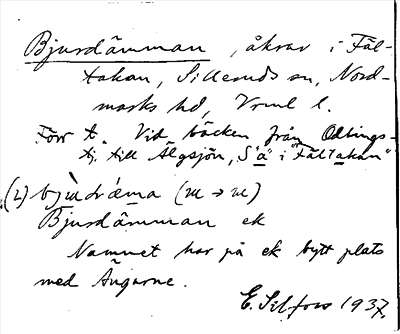 Bjurdämman, åkrar i Fäl-
takan, Silleruds sn, Nord-
marks hd, Vrml l.
Förr t. Vid bäcken från Odlings-
tj. till Älgsjön, S "ä" i "Fältakan"
(L) (ɯ → ɯ)
Bjurdämman ek
Namnet har på ek bytt plats
med Ängarne.
E. Silfors 1937.